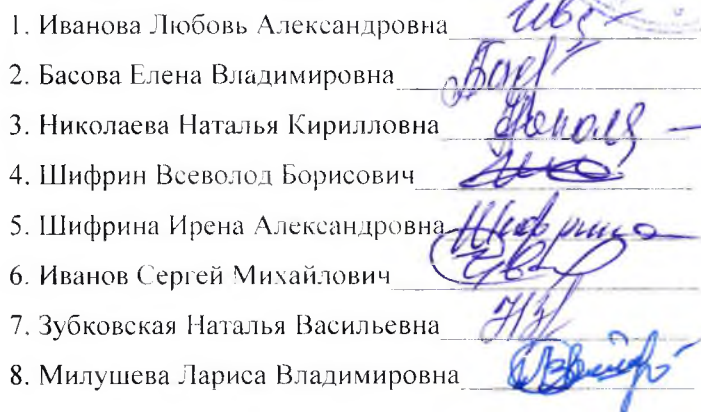 1. Иванова Любовь Александровна
2. Басова Елена Владимировна
3. Николаева Наталья Кирилловна
4. Шифрин Всеволод Борисович
5. Шифрина Ирена Александровна Шифрина
6. Иванов Сергей Михайлович
7. Зубковская Наталья Васильевна
8. Милушева Лариса Владимировна